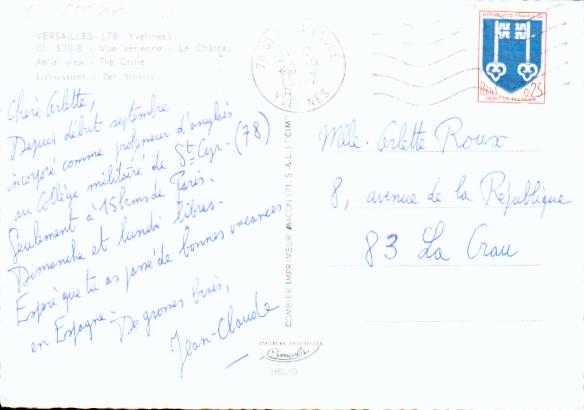 VERSAILLES (78. Yvelines)
Cl. 538-B - Vue aérienne - Le Château
Aerial view - The Castle
Luftansicht - Der Schloss
Chère Arlette,
Depuis début septembre
incorporé comme professeur d'anglais
au Collège militaire de St Cyr - (78)
Seulement à 15kms de Paris.
Dimanche et lundi libres.
Espère que tu as passé de bonnes vacances
en Espagne.
De grosses bises,
Jean-Claude
COMBIER IMPRIMEUR MACON (71. S.&L.) "CIM"
COULEURS NATURELLES
Combier
HELIO
78 ST
YVELINES
REPUBLIQUE FRANÇAISE
POSTES 0,25
MONT-DE-MARSAN
Mlle. Arlette Roux
8, avenue de la République
83 La Crau